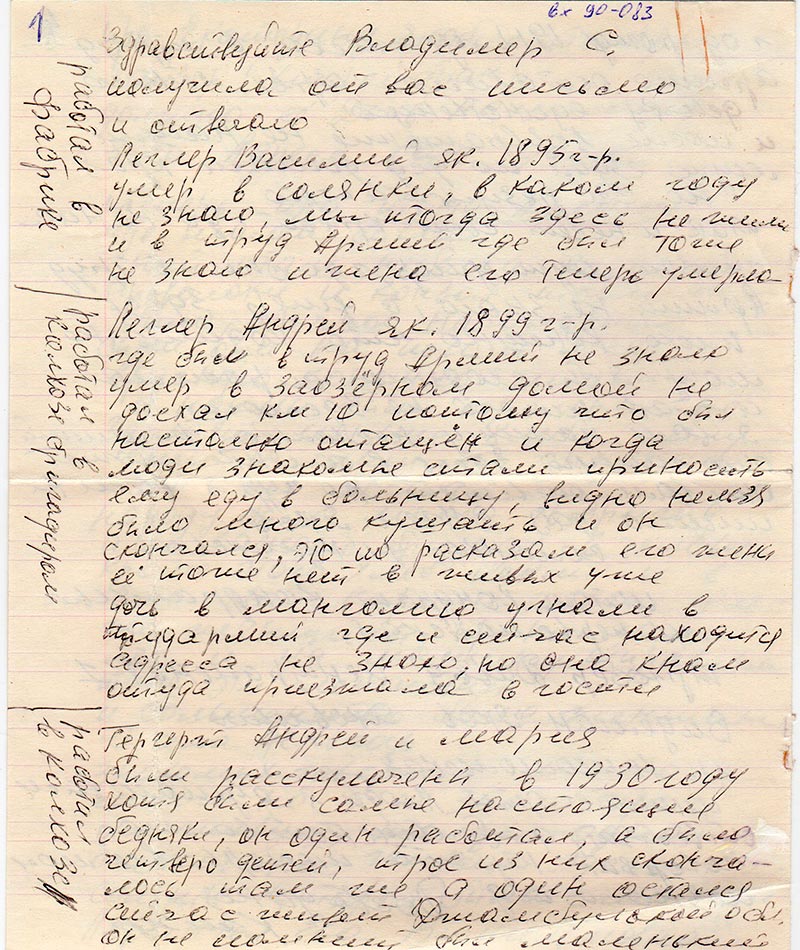 1
вх 90-083
Здравствуйте Владимер С.
получила от вас письмо
и отвечаю
Леглер Василий як. 1895 г-р.
умер в солянки, в каком году
не знаю, мы тогда здесь не жили
и в труд Армий где был тоже
не знаю и жена его теперь умерла
работал в
фабрике
Леглер Андрей як. 1899 г-р.
где был в труд Армий не знаю
умер в заозёрном домой не
доехал км 10 потому что был
настолько отащён и когда
люди знакомые стали приносить
ему еду в больницу, видно нельзя
было много кушать и он
скончался, это по расказам его жены
её тоже нет в живых уже
дочь в манголию угнали в
трудармий где и сейчас находится
адресса не знаю, но она к нам
оттуда приезжала в гости
работал в
колхозе бригадиром
Гергерт Андрей и мария
были расскулачены в 1930 году
хотя были самые настоящие
бедняки, он один работал, а было
четверо детей, трое из них сконча-
лось там же а один остался
сейчас живёт Джамбульской обл.
он не помнит был маленький
работал
в колхозе